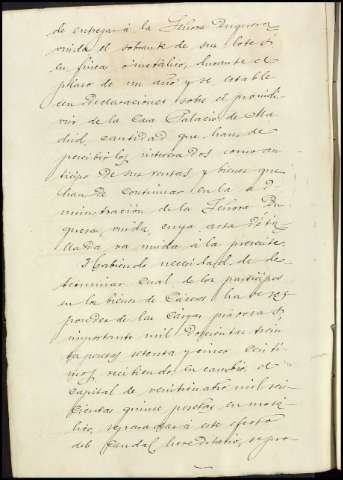 de entregar á la Señora Duquesa
viuda el sobrante de su lote ó
en finca ó metálico, durante el
plazo de un año y se estable
cen declaraciones sobre el proindi
viso de la Casa Palacio de Ma
drid, cantidad que han de
percibir los interesados como an
ticipo de sus rentas, y bienes que
han de continuar en la ad
ministración de la Señora Du
quesa, viuda, cuya acta
va unida á la presente.
Habiendo necesidad de de
terminar cual de los partícipes
en los bienes de Cáceres ha de res
ponder de las cargas piadosas
importante mil doscientas trein
ta pesetas setenta y cinco cénti
mos, recibiendo en cambio, el
capital de veinticuatro mil seis
cientas quince pesetas, en metá
lico, separadas á este efecto
del caudal hereditario, se pro-